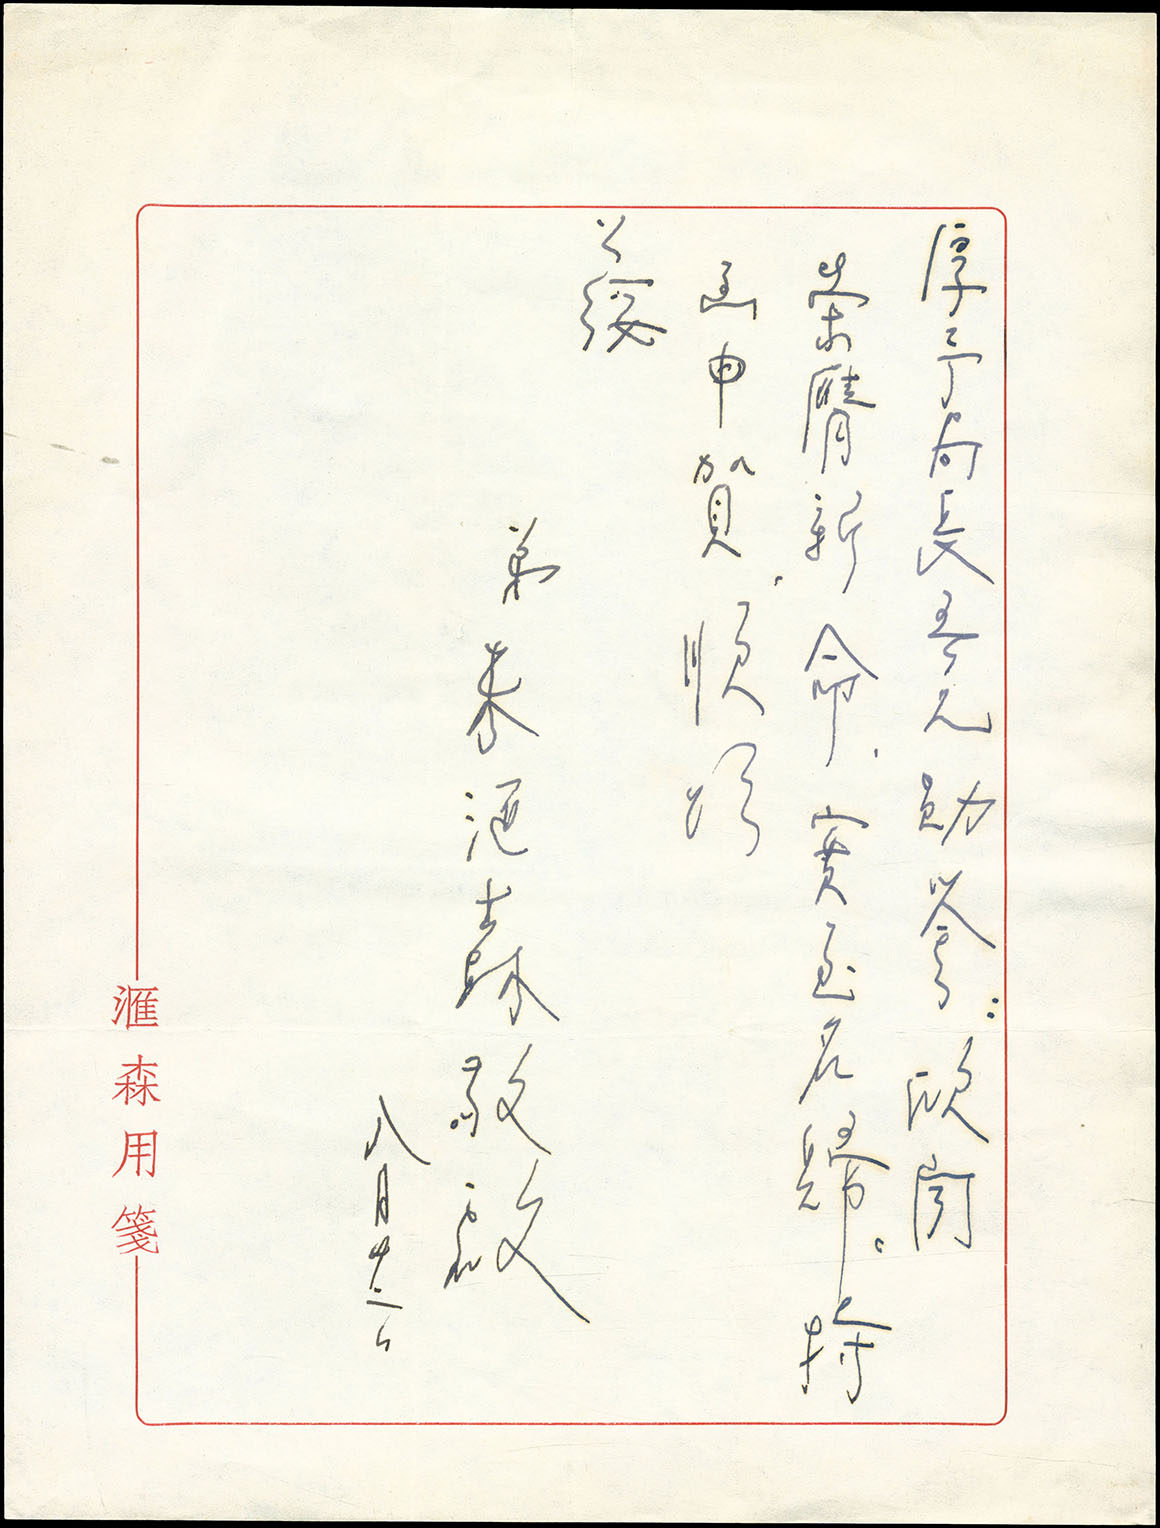 局長吾兄勛鑒：欣聞
榮膺新命，實至名歸。特
函申賀，順頌
公綏
弟朱滙森敬啟
八月廿二日
滙森用箋